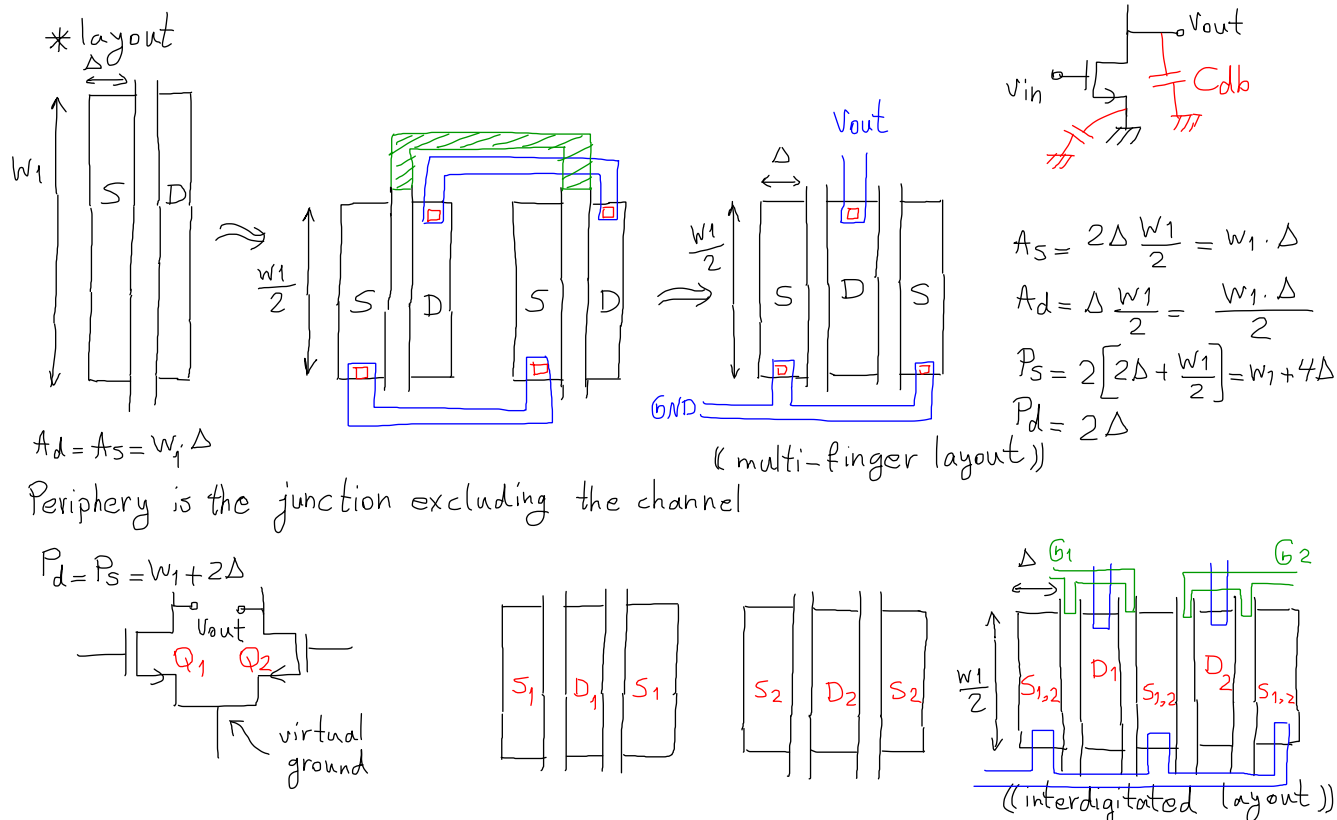 * layout
Δ
W1
S D
W1/2
S D S D
Vout
Δ
W1/2
S D S
GND
((multi-finger layout))
Vout
Vin
Cdb
As = 2Δ W1/2 = W1 . Δ
Ad = Δ W1/2 = W1 . Δ/2
Ps = 2[2Δ + W1/2] = W1 + 4Δ
Pd = 2Δ
Ad = As = W1 . Δ
Periphery is the junction excluding the channel
Pd = Ps = W1 + 2Δ
Vout
Q1 Q2
virtual
ground
S1 D1 S1
S2 D2 S2
G1 G2
Δ
W1/2
S1,2 D1 S1,2 D2 S1,2
((interdigitated layout))